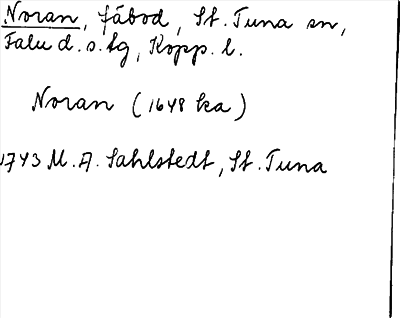 Noran, fäbod, St. Tuna sn,
Falu d.s.tg, Kopp. l.
Noran (1648 ka)
1743 M.A. Sahlstedt, St. Tuna